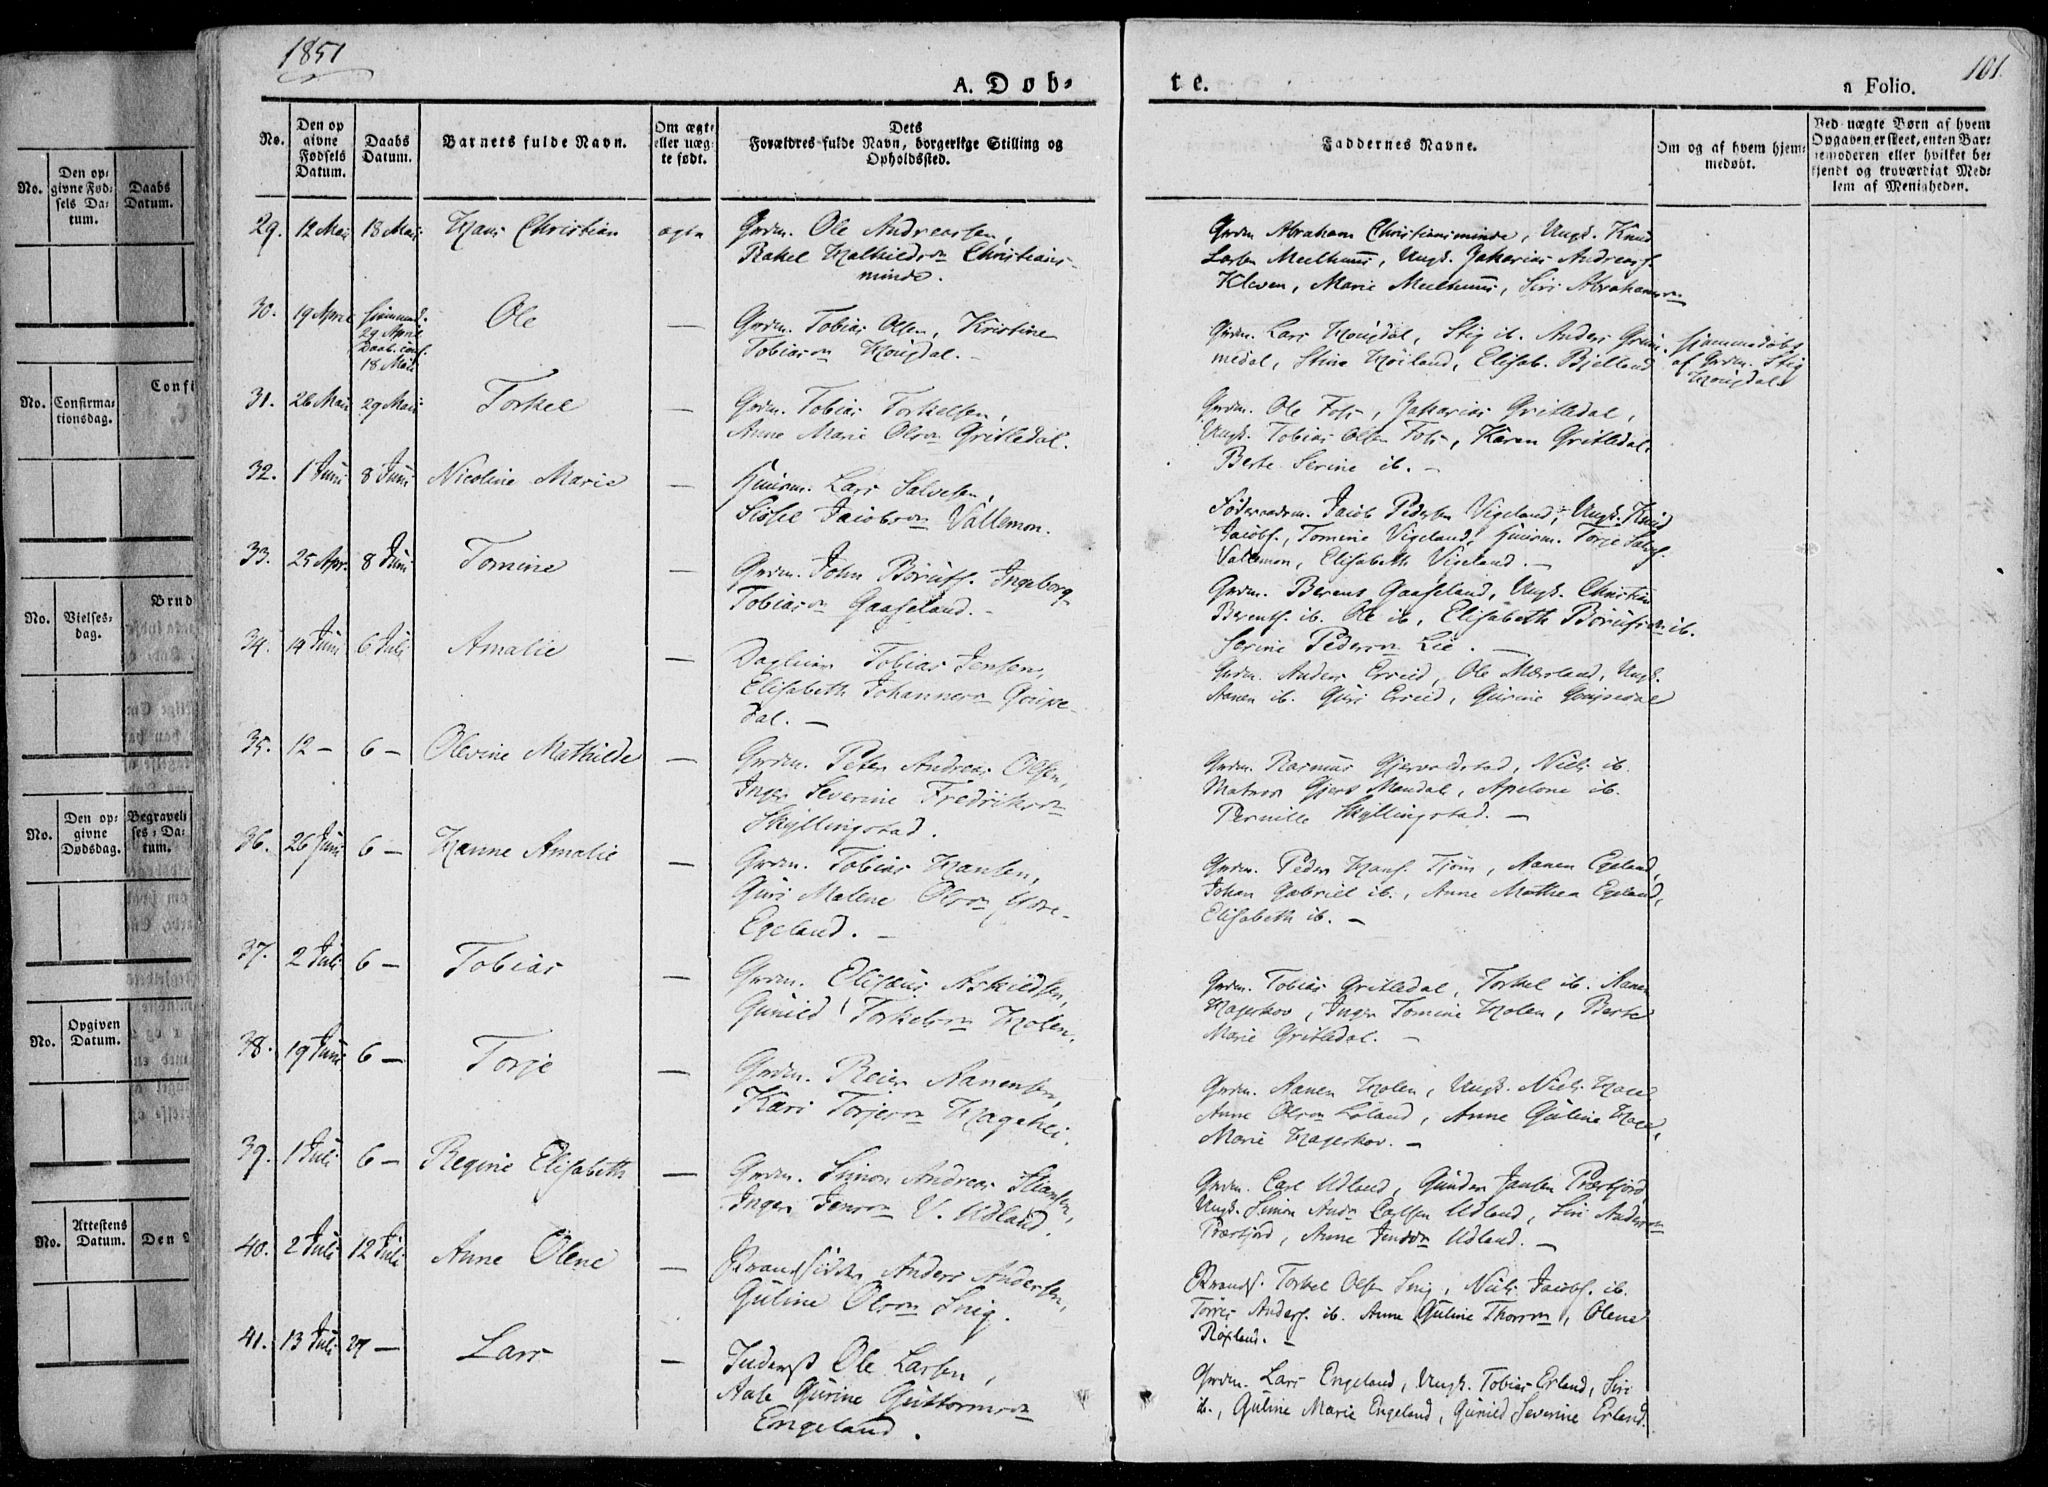 1851
101
A. Døb-
te.
n Folio.
No.
Den op
givne
Fødsels
Datum.
Daabs
Datum.
Barnets fulde Navn.
Om ægte
eller uæg-
te født.
Dets
Forældres fulde Navn, borgerlige Stilling og
Opholdssted.
Faddernes Navne.
Om og af hvem hjem-
medøbt.
Ved uægte Børn af hvem
Opgaven er skeet, enten Bar-
nemoderen eller hvilket be-
kjendt og troværdigt Med-
lem af Menigheden.
29. 12 Mai 18 Mai Hans Christian ægte Grdm. Ole Andreassen,
Rakel Mathildsn Christians-
minde.
Grdm Abraham Christiansminde, Ungk. Knud
Larsen Meelhuus, Ungk. Zakarias Andreas.
Kleven, Marie Meelhuus, Siri Abrahamsn
30. 19 April hjemmed. Ole —
29 April
Daab. conf.
18 Mai
Grdm. Tobias Olsen, Kristine
Tobiasn Hougdal. —
Grdm. Lars Hougdal, Stig ib. Anders Grim-
medal, Stine Høiland, Elisab. Bjelland
hjemmedøbt
af Grdm. Stig
Hougdal
31. 26 Mai 29 Mai Torkel — Grdm. Tobias Torkelsen,
Anne Marie Olsn Gritledal.
Grdm. Ole Foss, Zakarias Gritledal,
Ungk. Tobias Olsen Foss, Karen Gritledal,
Berte Serine ib. —
32. 1 Juni 8 Juni Nicoline Marie — Huusm. Lars Salvesen,
Siskel Jacobsn Vallemon.
Føderaadsm. Jacob Pedersen Vigeland, Ungk. Knud
Jacobs., Tomine Vigeland, Huusm. Torje Salvs.
Vallemon, Elisabeth Vigeland. —
33. 25 Apr. 8 Juni Tomine — Grdm. John Børufs. Ingeborg
Tobiasn Gaaseland. —
Grdm. Berent Gaaseland, Ungk. Christian
Berents. ib. Ole ib, Elisabeth Børufsn ib.
Serine Pedersn Lie. —
34. 14 Juni 6 Juli Amalie — Dagleier Tobias Jensen,
Elisabeth Johannesn Goupe-
dal. —
Grdm. Anders Erveid, Ole Mærland, Ungk.
Aanen ib. Guri Erveid, Gurine Goupedal
35. 12 — 6 — Olevine Mathilde — Grdm. Peter Andreas Olsen,
Inger Severine Fredriksn
Skyllingstad.
Grdm. Rasmus Gjervoldstad, Niels ib.
Matros Gjert Mandal, Apelone ib.
Pernille Skyllingstad. —
36. 26 Juni 6 — Hanne Amalie — Grdm. Tobias Hansen,
Guri Malene Olsn
Egeland. —
Grdm. Peder Hans. Tjom, Aanen Egeland,
Johan Gabriel ib., Anne Mathea Egeland,
Elisabeth ib. —
37. 2 Juli 6 — Tobias — Grdm. Elisæus Askildsen,
Gunild Torkelsn Holen.
Grdm. Tobias Gritledal, Torkel ib. Aanen
Hageskov, Inger Tomine Holen, Berte
Marie Gritledal. —
38. 19 Juni 6 — Torje — Grdm. Reier Aanensen,
Kari Torjesn Haghei.
Grdm. Aanen Holen, Ungk. Niels
Anne Olsn Løland, Anne Guline
Marie Hageskov. —
39. 1 Juli 6 — Regine Elisabeth — Grdm. Simon Andreas Stiansen,
Inger Jensn V. Udland.
Grdm. Carl Udland, Gunder Jansen Trærfjord
Ungk. Simon Andr. Carlsen Udland, Siri Andersn
Trærfjord, Anne Jensdn Udland. —
40. 2 Juli 12 Juli Anne Olene — Strandsidder Anders Andersen,
Guline Olsn Snig.
Strands. Torkel Olsen Snig, Niels Jacobs. ib.
Torres Anders. ib. Anne Guline Thorsn, Olene
Røxland. —
41. 13 Juli 27 — Lars — Inderst Ole Larsen,
Aase Gurine Guttormsn
Emgeland.
Grdm. Lars Engeland, Ungk. Tobias Erland, Siri
ib., Guline Marie Engeland, Gunild Severine Erland.
No.
Den op-
givne Fød-
sels Da-
tum.
Daabs
Datum.
Confi
No.
Confirma-
tionsdag.
Brud
No.
Vielses-
dag.
No.
Den op-
givne
Dødsdag.
Begravel-
ses-Da-
tum.
No.
Opgiven
Datum.
No.
Attestens
Datum.
Den